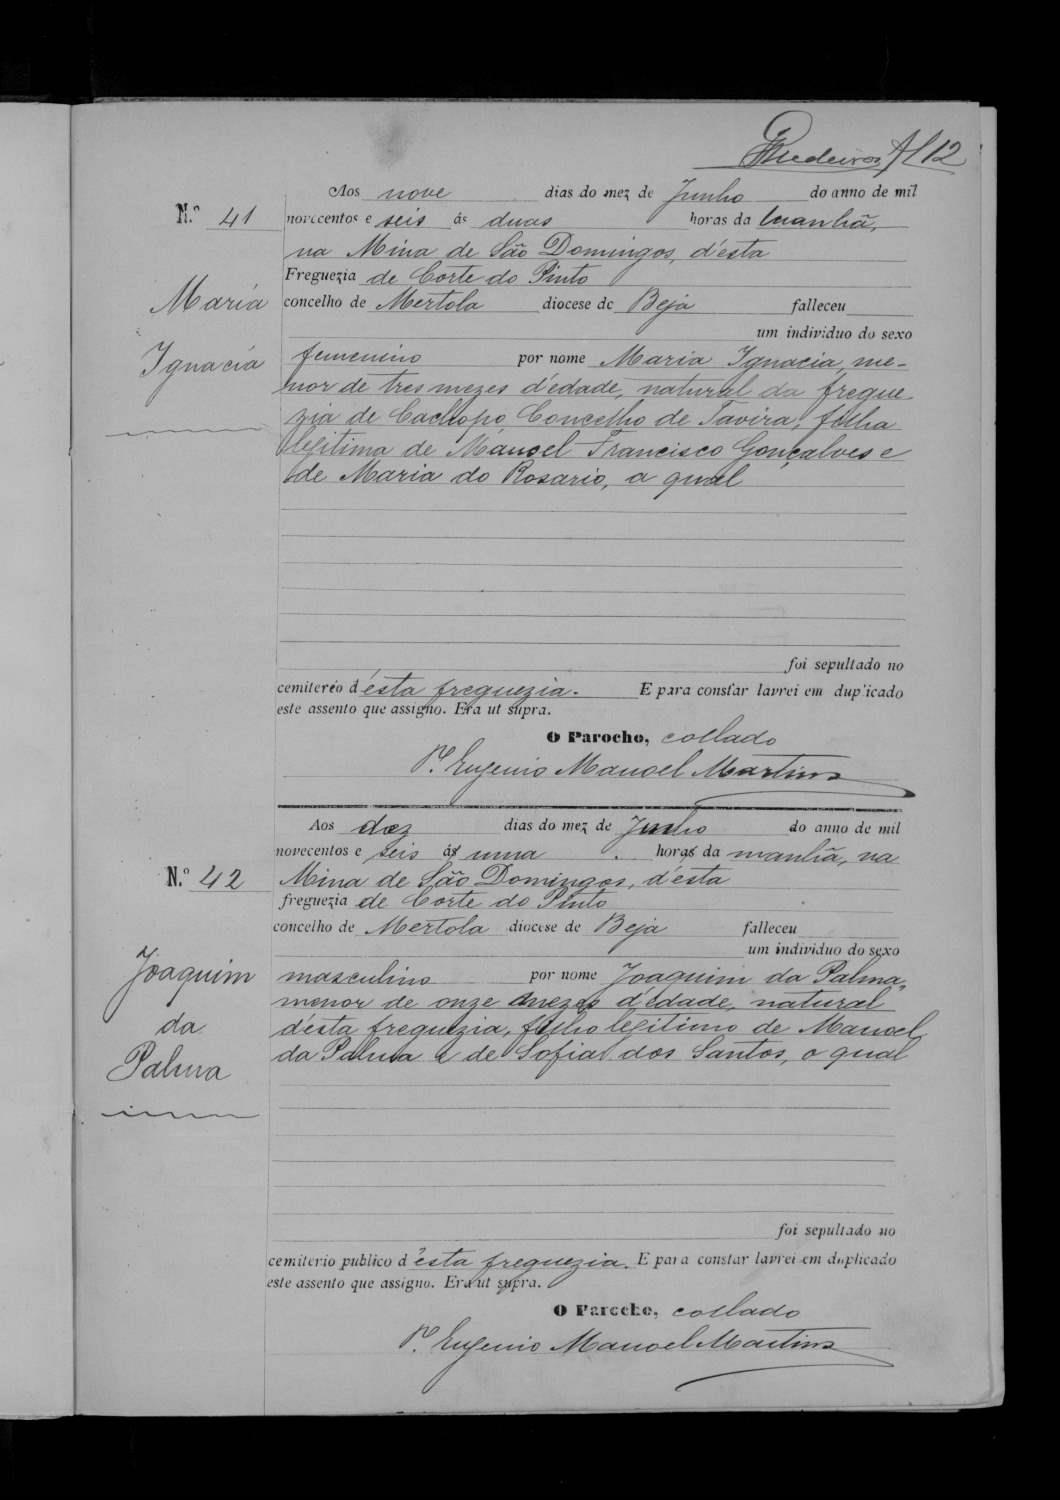 Medeiros Fl 12
Aos nove dias do mez de Junho do anno de mil
N.º 41 novecentos e seis ás duas horas da manhã,
na Mina de São Domingos, d'esta
Freguezia de Corte do Pinto
Maria concelho de Mertola diocese de Beja falleceu
um individuo do sexo
Ignacia femenino por nome Maria Ignacia, me-
nor de tres mezes d'edade, natural da fregue-
zia de Cachopo, Concelho de Tavira, filha
legitima de Manoel Francisco Gonçalves e
de Maria do Rosario, a qual
foi sepultado no
cemiterio d'ésta freguezia. E para constar lavrei em duplicado
este assento que assigno. Era ut supra.
O Parocho, collado
P.e Eugenio Manoel Martins
Aos dez dias do mez de Junho do anno de mil
novecentos e seis ás uma horas da manhã, na
N.º 42 Mina de São Domingos, d'ésta
freguezia de Corte do Pinto
concelho de Mertola diocese de Beja falleceu
um individuo do sexo
Joaquim masculino por nome Joaquim da Palma,
menor de onze mezes d'edade, natural
da d'ésta freguezia, filho legitimo de Manoel
Palma da Palma e de Sofia dos Santos, o qual
foi sepultado no
cemiterio publico d'ésta freguezia. E para constar lavrei em duplicado
este assento que assigno. Era ut supra.
O Parocho, collado
P.e Eugenio Manoel Martins